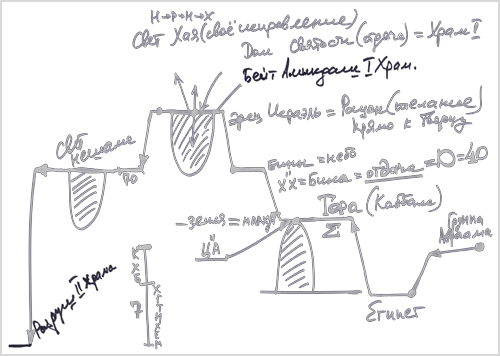 Н→Р→Н→Х
Свет Хая (своё исправление)
Дом Святости (отдача) = Храм II
Бейт Амикдаш I Храм.
Эрец Исраэль = Рацон (желание)
Прямо к Творцу
Свет
нешама
70
Бина = небо
ХХ = Бина = отдача = 10 = 40
Тора (Каббала)
Группа
Авраама
– земля = малхут
ЦА
Σ
Египет
Разрушен II Храма
7
К
Х
Б
Х
Г
Т
Н
Х
Е